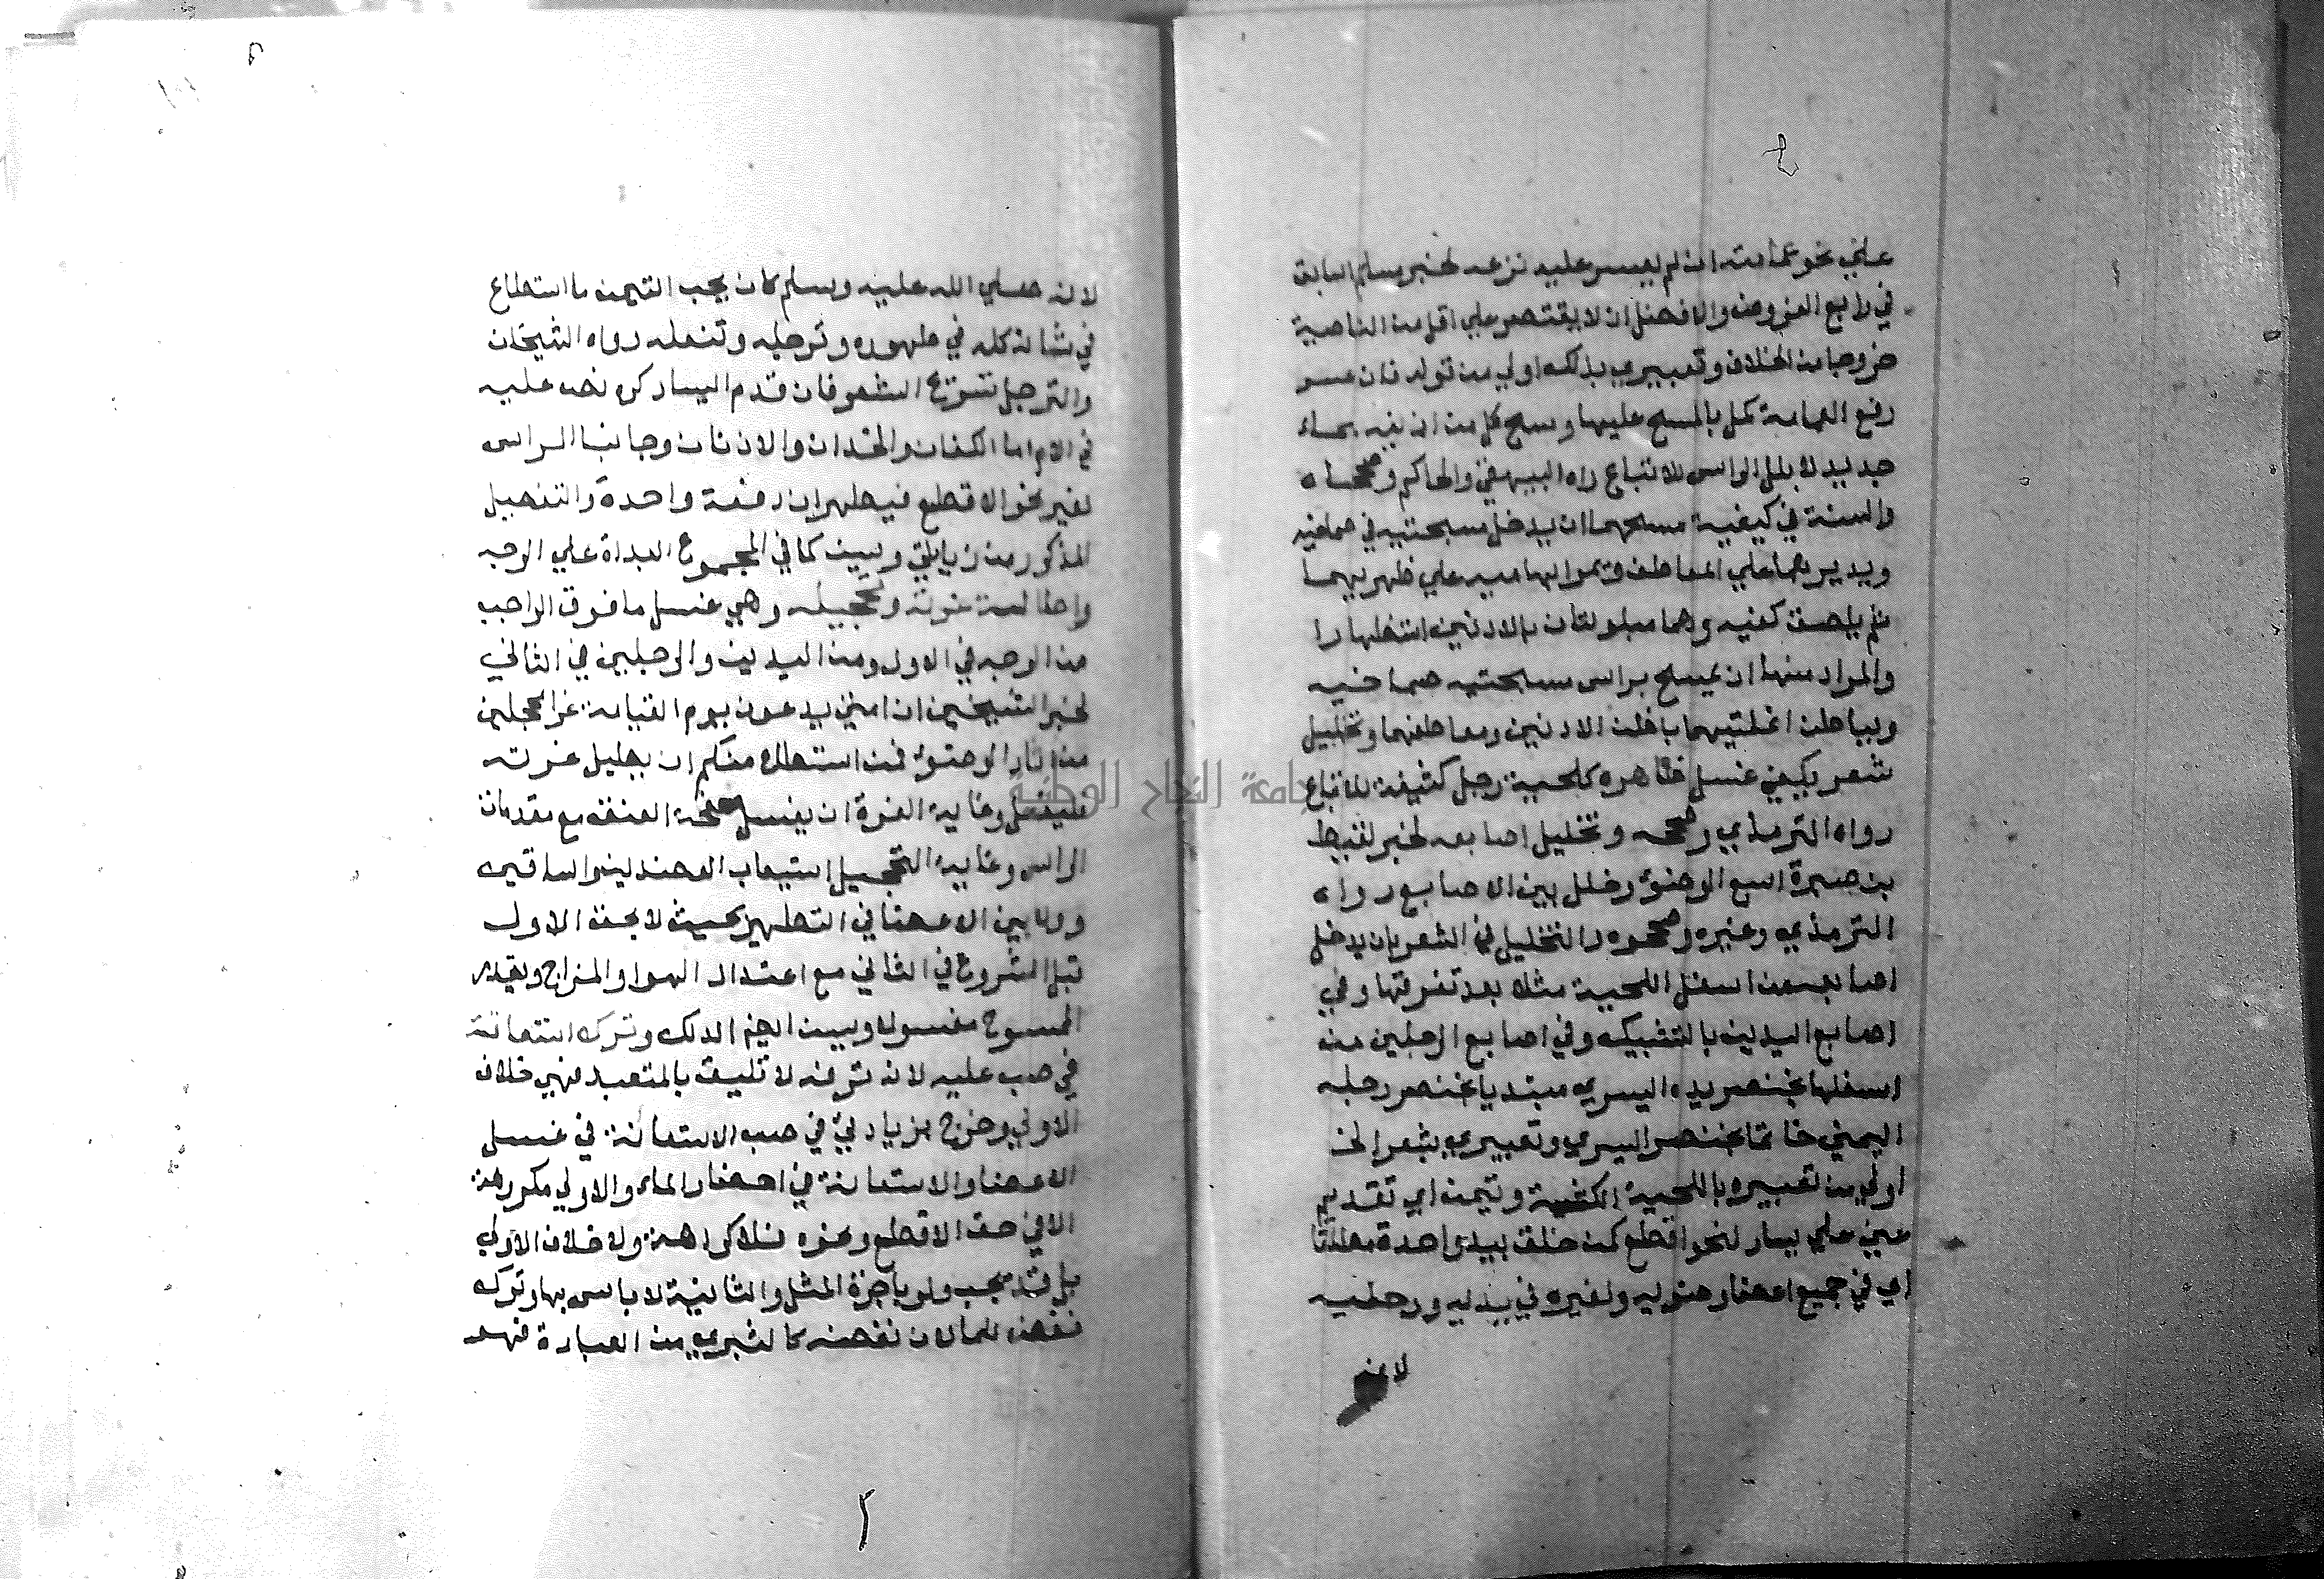 ٤
علي نحو عمامته ان لم يعسر عليه نزعه لخبر مسلم السابق
في رابع الفروض والافضل ان لا يقتصر علي اقل من الناصية
خروجا من الخلاف وتعبيري بذلك اولي من قوله فان عسر
رفع العمامة كمل بالمسح عليها ومسح كل من اذنيه بماء
جديد لا بلل الراس للاتباع راه البيهقي والحاكم وصححاه
والسنة في كيفية مسحهما ان يدخل مسبحتيه في صماخيه
ويديرهما علي المعاطف ويمر ابهاميه علي ظهريهما
ثم يلصق كفيه وهما مبلولتان بالاذنين استظهارا
والمراد منها ان يمسح براس مسبحتيه صماخيه
وبباطن انملتيهما باطن الاذنين ومعاطفهما وتخليل
شعر يكفي غسل ظاهره كلحية رجل كثيفة للاتباع
رواه الترمذي وصححه وتخليل اصابعه لخبر لقيط
بن صبرة اسبغ الوضوء وخلل بين الاصابع رواه
الترمذي وغيره وصححوه والتخليل في الشعر بان يدخل
اصابعه من اسفل اللحية مثلا بعد تفرقتها وفي
اصابع اليدين بالتشبيك وفي اصابع الرجلين من
اسفلها بخنصر يده اليسري مبتديا بخنصر رجله
اليمني خاتما بخنصر اليسري وتعبيري بشعر الخ
اولي من تعبيره باللحية الكثة وتيمن اي تقديم
يمين علي يسار لنحو اقطع كمن خلق بيد واحدة مطلقا
اي في جميع اعضا وضوئه ولغيره في يديه ورجليه
لانه
٥
لانه صلي الله عليه وسلم كان يحب التيمن ما استطاع
في شانه كله في طهوره وترجله وتنعله رواه الشيخان
والترجل تسريح الشعر فان قدم اليسار كره نص عليه
في الام اما الكفان والخدان والاذنان وجانبا الراس
لغير نحو الاقطع فيطهران دفعة واحدة والتفصيل
المذكور من زيادتي ويسن كما في المجموع البداة علي الوجه
واطالة غرته وتحجيله وهي غسل ما فوق الواجب
من الوجه في الاول ومن اليدين والرجلين في الثاني
لخبر الشيخين ان امتي يدعون يوم القيامة غرا محجلين
من اثار الوضوء فمن استطاع منكم ان يطيل غرته
فليفعل وغاية الغرة ان يغسل صفحة العنق مع مقدمات
الراس وغاية التحجيل استيعاب العضدين والساقين
وولا بين الاعضا في التطهير بحيث لا يجف الاول
قبل الشروع في الثاني مع اعتدال الهوا والمزاج ويقدر
الممسوح مغسولا ويسن ايضا الدلك وترك استعانة
في صب عليه لانه ترفه لا تليق بالمتعبد فهي خلاف
الاولي وخرج بزيادتي في صب الاستعانة في غسل
الاعضا والاستعانة في احضار الماء والاولي مكروهة
الا في حق الاقطع ونحوه فلا كراهة ولا خلاف الاولي
بل قد تجب ولو باجرة المثل والثانية لا باس بها وترك
نفض للما لان نفضه كالتبري من العبادة فهو
جامعة النجاح الوطنية